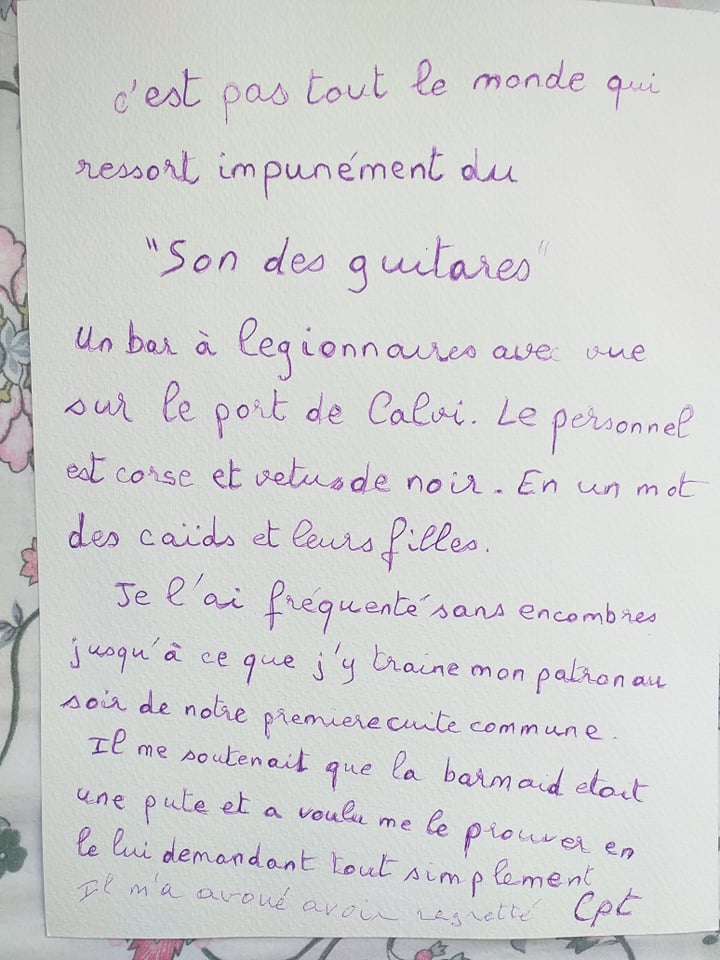 c'est pas tout le monde qui
ressort impunément du
"Son des guitares"
Un bar à legionnaires avec vue
sur le port de Calvi. Le personnel
est corse et vetus de noir. En un mot
des caïds et leurs filles.
Je l'ai fréquenté sans encombres
jusqu'à ce que j'y traine mon patron au
soir de notre premiere cuite commune.
Il me soutenait que la barmaid etait
une pute et a voulu me le prouver en
le lui demandant tout simplement
Il m'a avoué avoir regretté Cpt